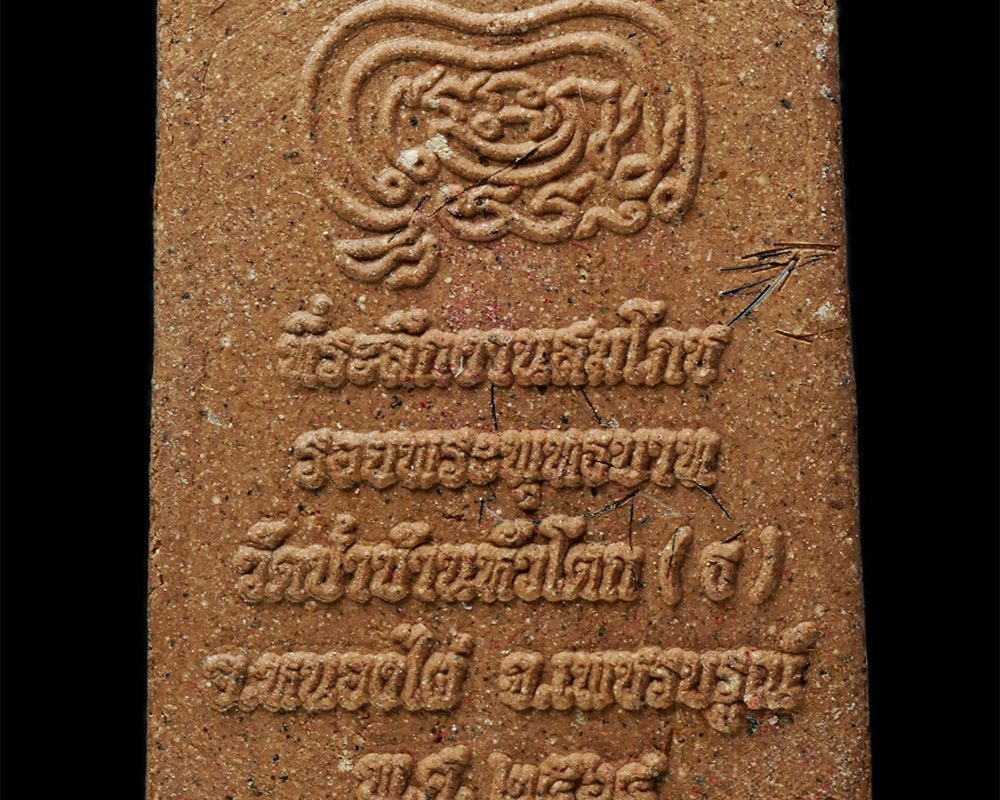 ที่ระลึกงานสมโภช
รอยพระพุทธบาท
วัดป่าบ้านหัวโตก (ธ)
อ.หนองไผ่ จ.เพชรบูรณ์
พ.ศ.